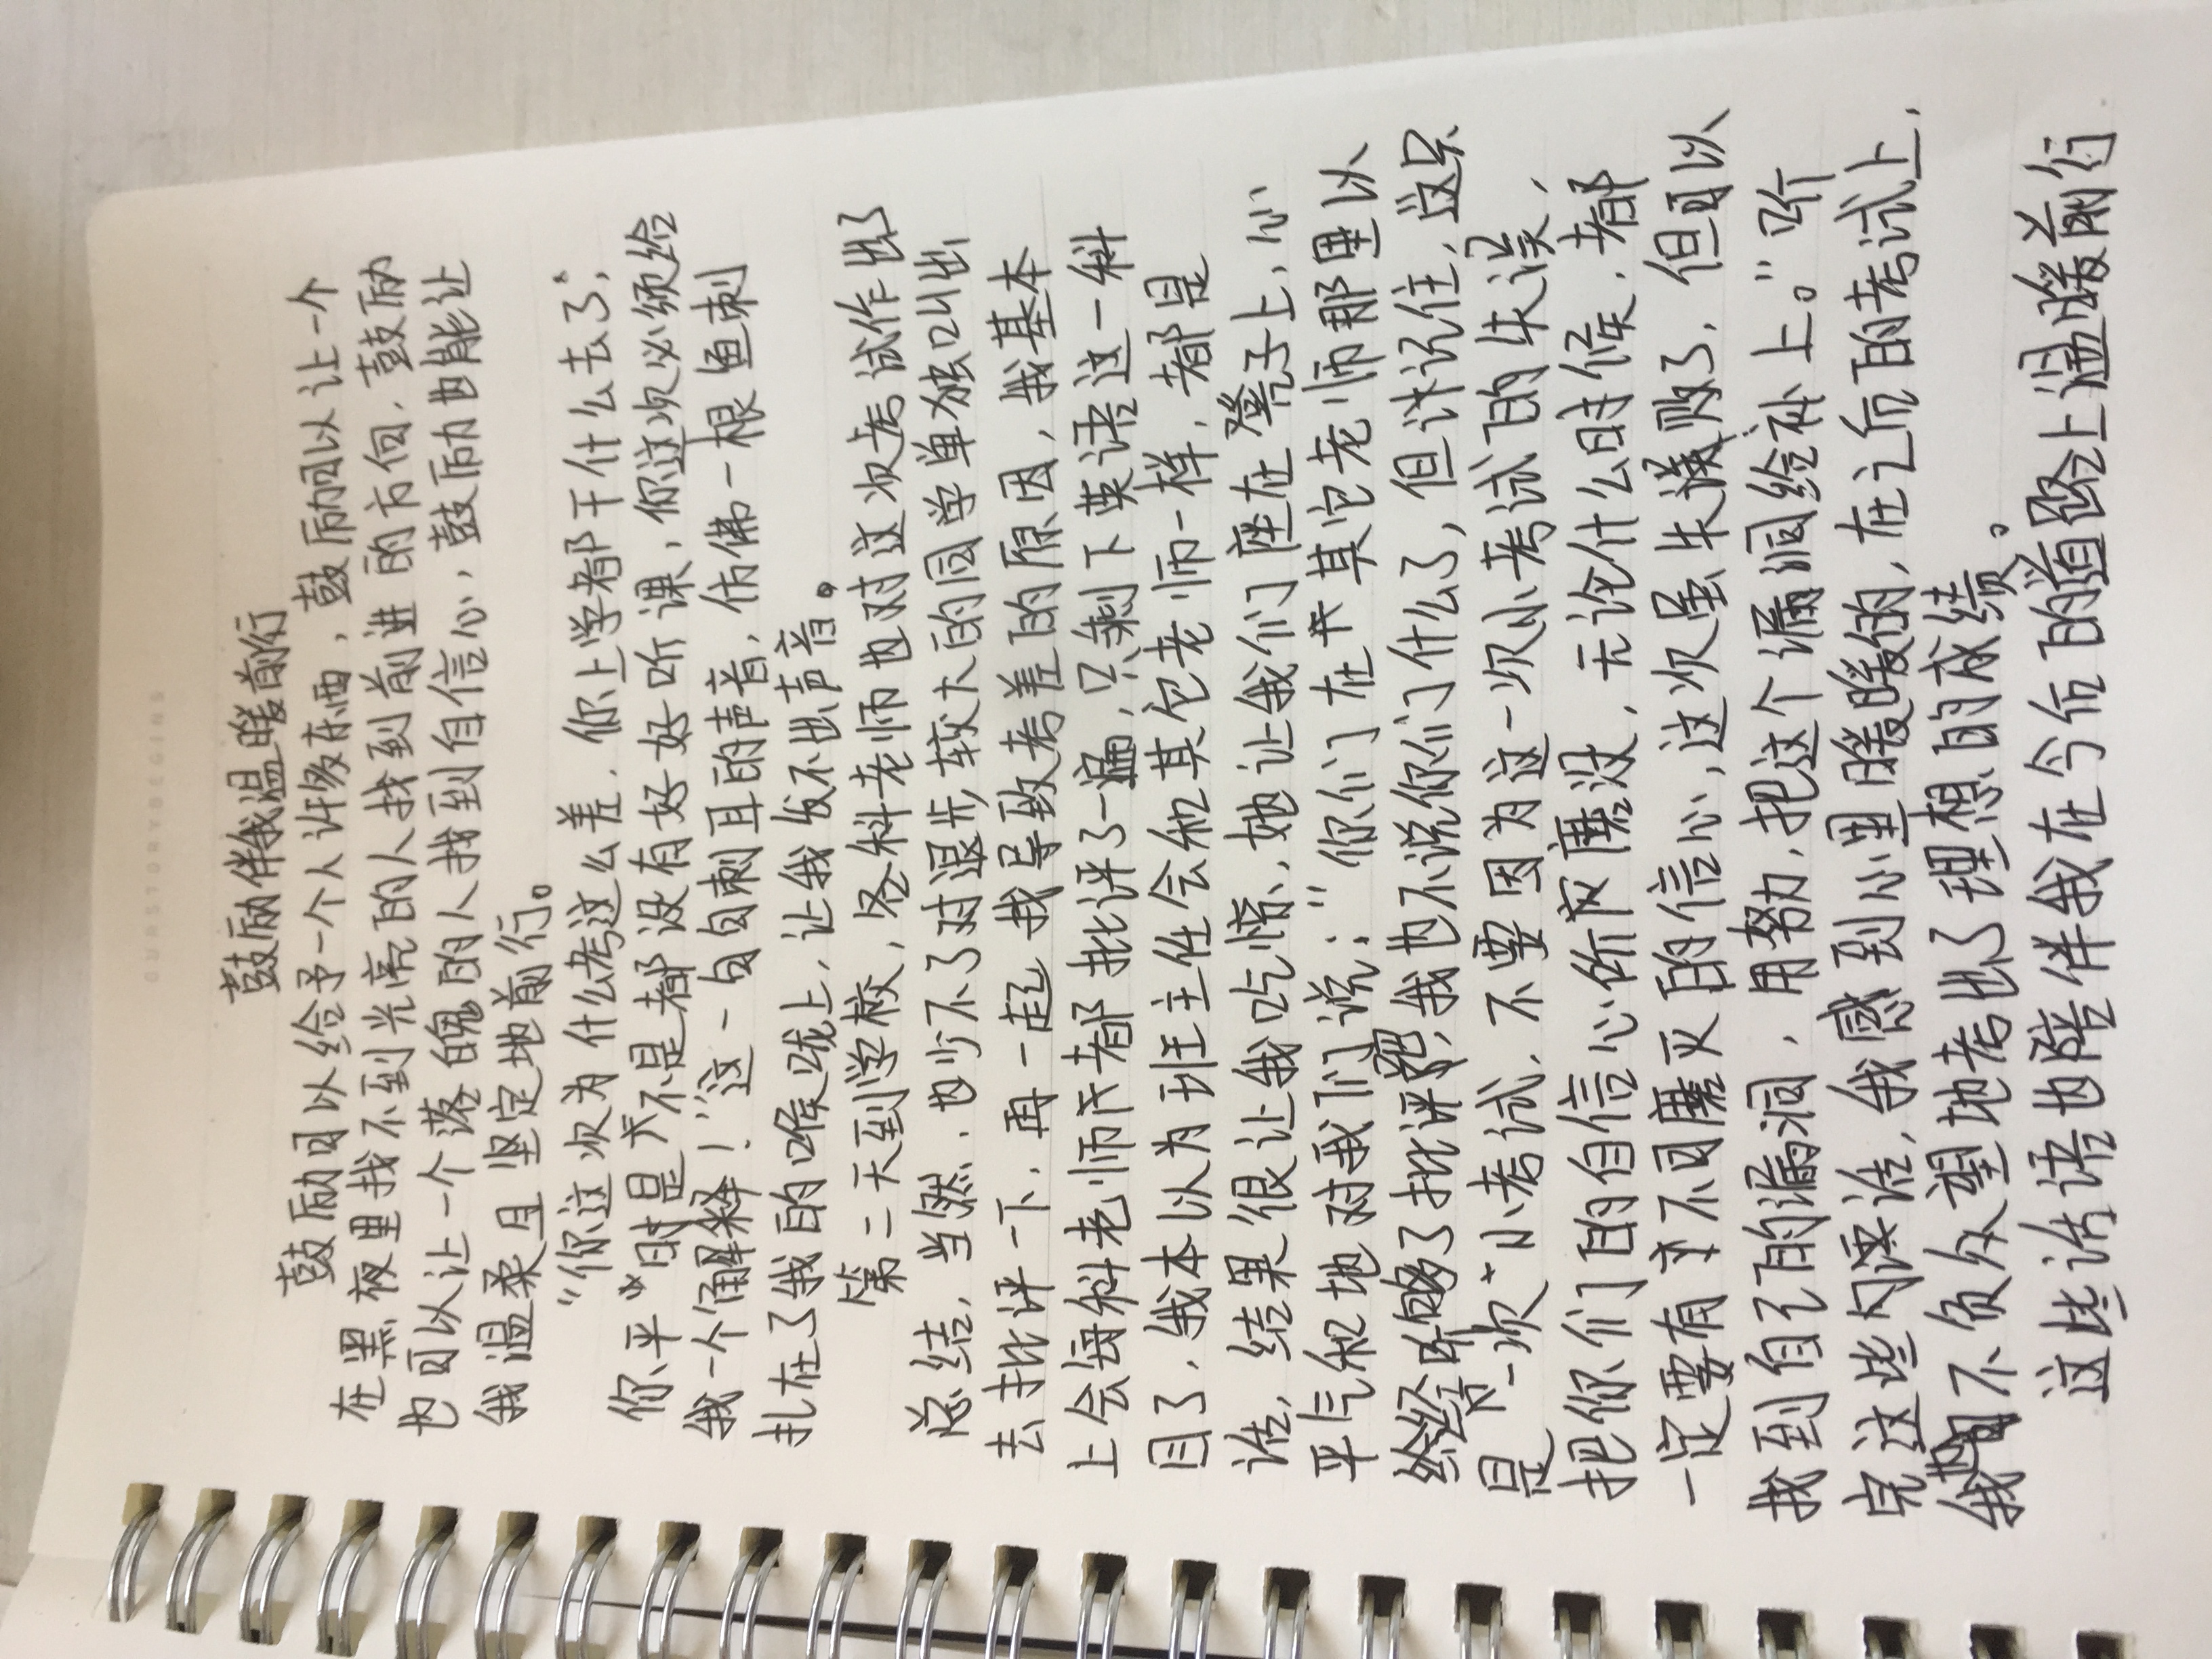 OURSTORYBEGINS
鼓励伴我温暖前行
鼓励可以给予一个人许多东西，鼓励可以让一个
在黑夜里找不到光亮的人找到前进的方向，鼓励
也可以让一个落魄的人找到自信心，鼓励也能让
我温柔且坚定地前行。
“你这次为什么考这么差，你上学都干什么去了，
你平时是不是都没有好好听课，你这次必须给
我一个解释！”这一句句刺耳的声音，仿佛一根鱼刺
扎在了我的喉咙上，让我发不出声音。
第二天到学校，各科老师也对这次考试作出了
总结，当然，也少不了对退步较大的同学单独叫出
去批评一下，再一起找导致考差的原因，我基本
上会每科老师都批评了一遍，只剩下英语这一科
目了，我本以为班主任会和其它老师一样，都是
结果很让我吃惊，她让我们座在凳子上，心
平气和地对我们说：“你们在其它老师那里以
经听够了批评，我也不说你们什么了，但请记住，这只
是一次小考试，不要因为这一次小考试的失误，
把你们的自信心所磨没，无论什么时候，都
一定要有不可磨灭的信心，这次虽失败了，但可以
找到自己的漏洞，用努力，把这个漏洞给补上。”听
完这些话，我感到心里暖暖的，在之后的考试上，
我不负众望地考出了理想的成绩。
这些话语也陪伴我在今后的道路上温暖前行